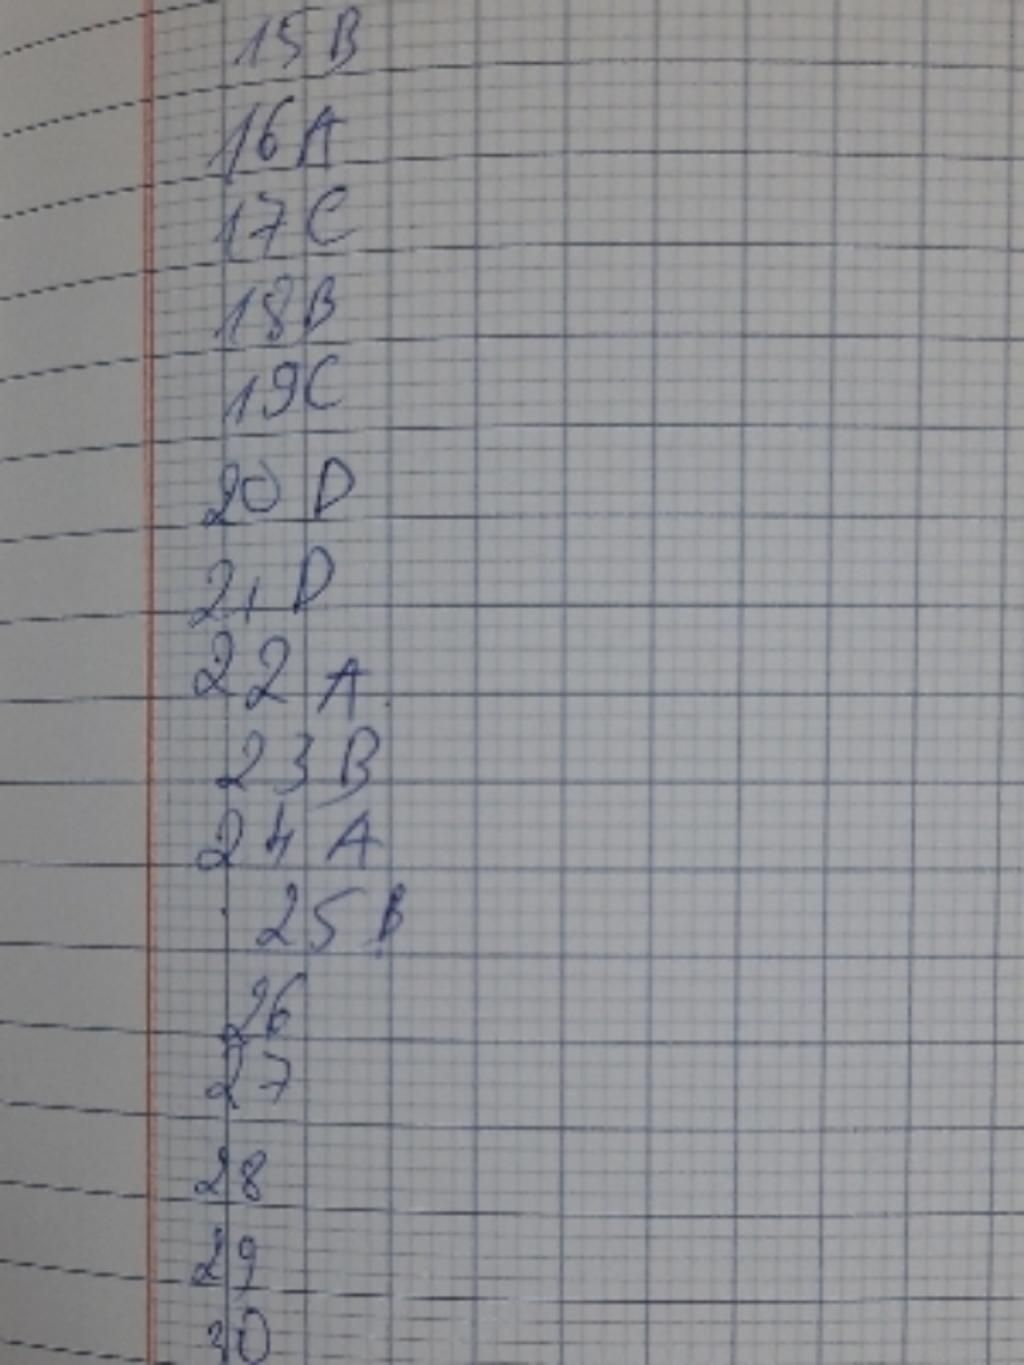 15 B
16 A
17 C
18 B
19 C
20 D
21 D
22 A
23 B
24 A
25 B
26
27
28
29
30